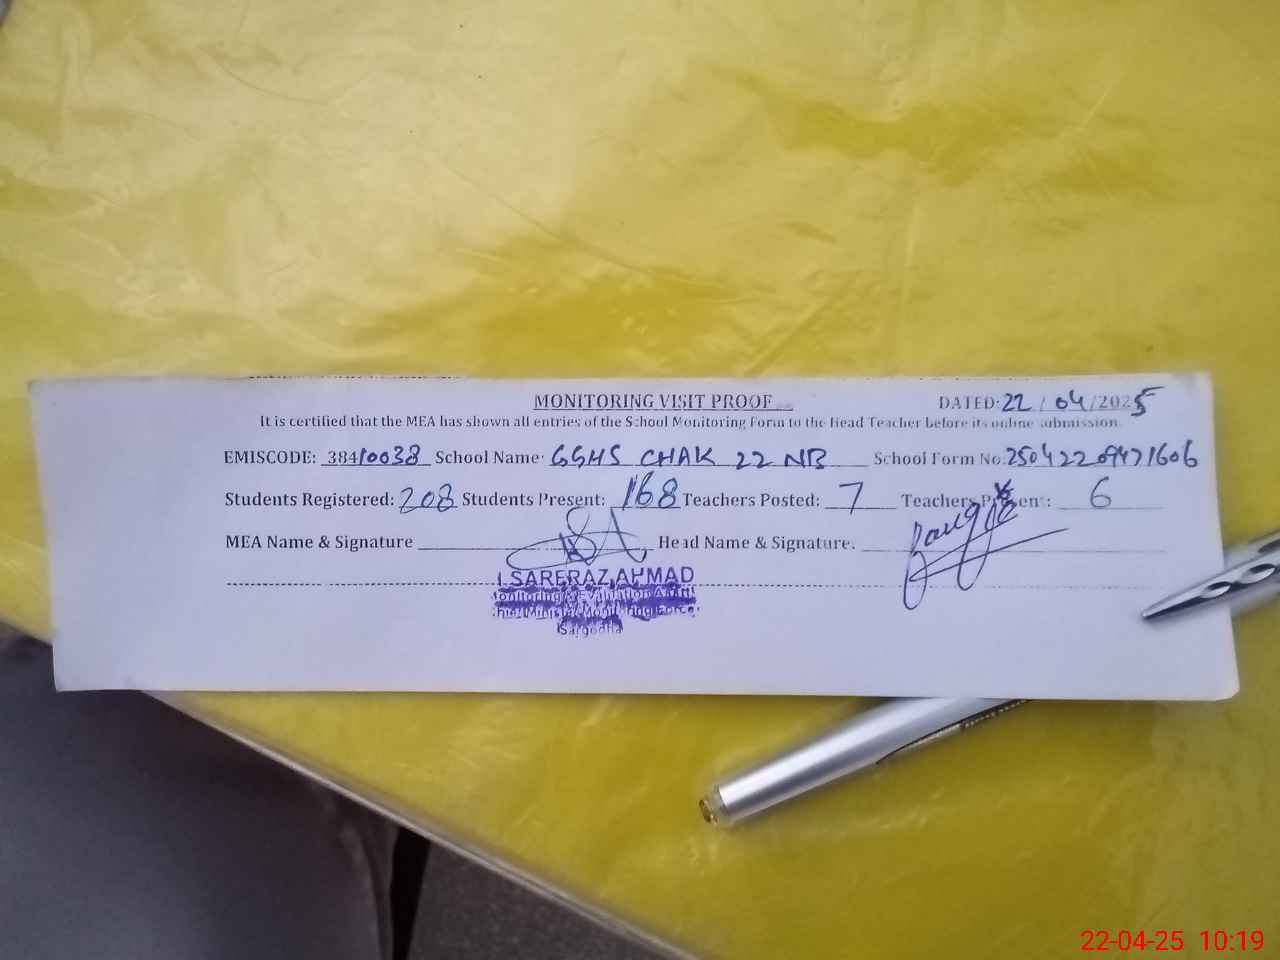 MONITORING VISIT PROOF DATED: 22 / 04 / 2025
It is certified that the MEA has shown all entries of the School Monitoring Form to the Head Teacher before its online submission.
EMISCODE: 38410038 School Name: GGHS CHAK 22 NB School Form No: 25042209471606
Students Registered: 208 Students Present: 168 Teachers Posted: 7 Teachers Present: 6
MEA Name & Signature Head Name & Signature:
AHMAD
Sargodha
22-04-25 10:19